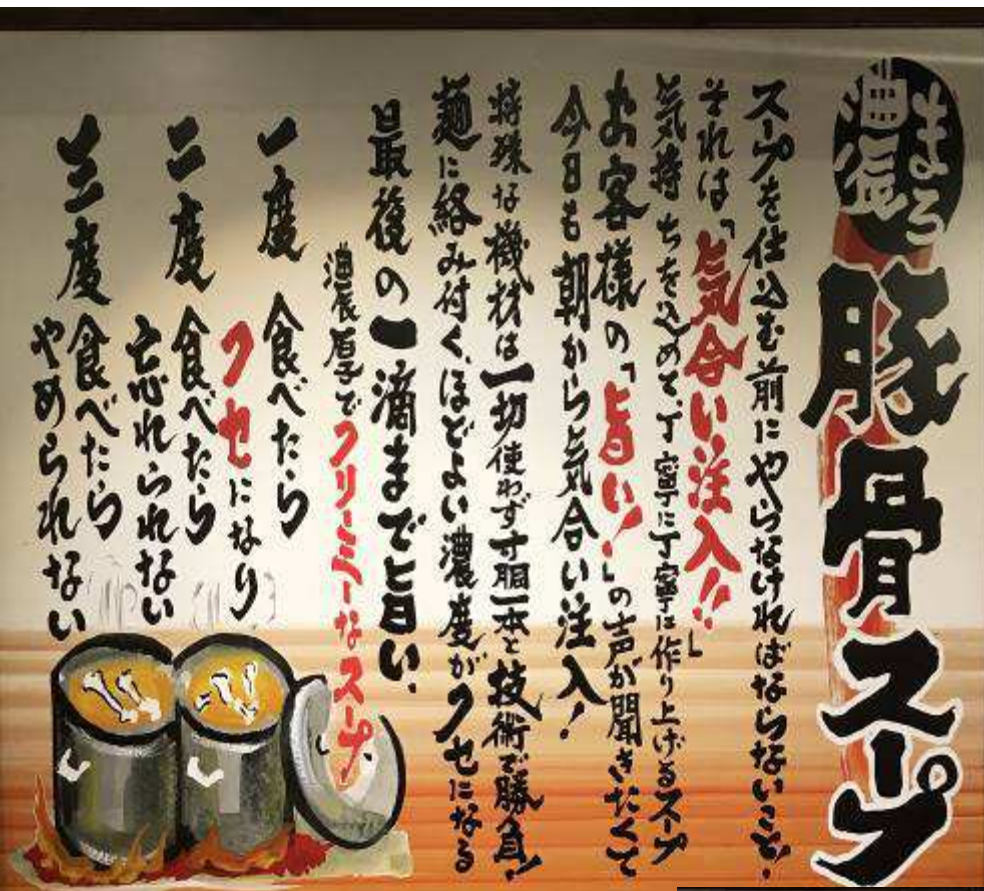 まろ
豚骨スープ
スープを仕込む前にやらなければならないこと！
それは「気合い注入！！」
気持ちを込めて、丁寧に丁寧に作り上げるスープ
お客様の「旨い！」の声が聞きたくて
今日も朝から気合い注入！
特殊な機材は一切使わず寸胴一本と技術で勝負！
麺に絡み付く、ほどよい濃度がクセになる
最後の一滴まで旨い、
でクリーミーなスープ
一度食べたら
クセになり
二度食べたら
忘れられない
三度食べたら
やめられない